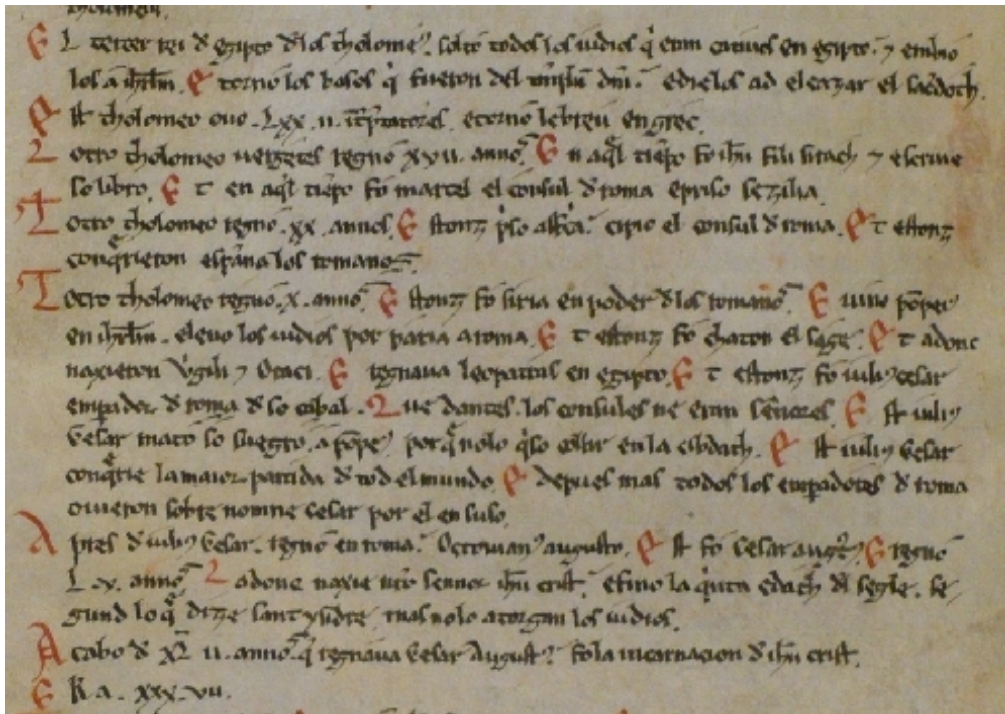 El tercer rei d egipto d los tholome9. solto todos los iudios q̃ eran catiuos en egipto. ⁊ embio
los a ihrlm. Et torno los basos q̃ fueron del templũ dñi. e dielos ad eleazar el sacerdoch.
Est tholomeo ouo .Lxx.ii. e torno lebreu en grec.
Lotro tholomeo uergetes regno xxvii. annos. En aq̃l tiẽpo fo ihũ fili sirach ⁊ escriue
so libro. Et en aq̃l tiẽpo fo marcel el consul d roma e priso sezilia.
Lotro tholomeo regno .xx. annos. Estonz p̃so cipio el consul d roma. Et estonz
conq̃rieron espãna los romanos.
Lotro tholomeo regno .x. annos. Estonz fo siria en poder d los romanos. E uino põpeo
en ihrlm. e leuo los iudios por paria a roma. Et estonz fo chaton el sage. Et adonc
naxieron Virgili ⁊ Oraci. E regnaua leopatras en egipto. Et estonz fo iuli9 cesar
empador d roma d so cabal. Que dantes los consules ne eran sennores. Est iuli9
cesar mato so suegro a põpeo porq̃ nolo q̃so coller en la cibdach. Est iuli9 cesar
conq̃rie la maior partida d tod el mundo. E depues mas todos los empadores d roma
ouieron sobre nomne cesar por el en suso.
Apres d iuli9 cesar. regno en roma Octouian9 augusto. Est fo cesar E regno
L.v. annos. Ladonc naxie nr̃o sennor ihũ crist. e fino la q̃nta edach del segle. se-
gund lo q̃ dize sant ysidre. mas nolo atorgan los iudios.
A cabo d xL ii. annos. q̃ regnaua cesar August9. fo la incarnacion d ihũ crist.
ERa. xxx.vii.